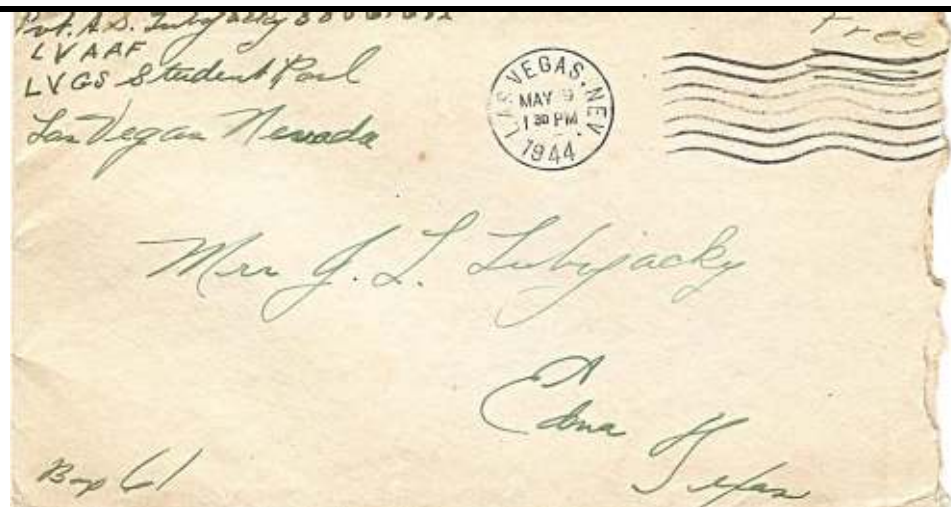 Pvt. A.S. Lubojacky
LVAAF
LVGS Student Pool
Las Vegas Nevada
Free
LAS VEGAS, NEV
MAY 9
1 30 PM
1944
Mrs J. L. Lubojacky
Edna
Texas
Box 61